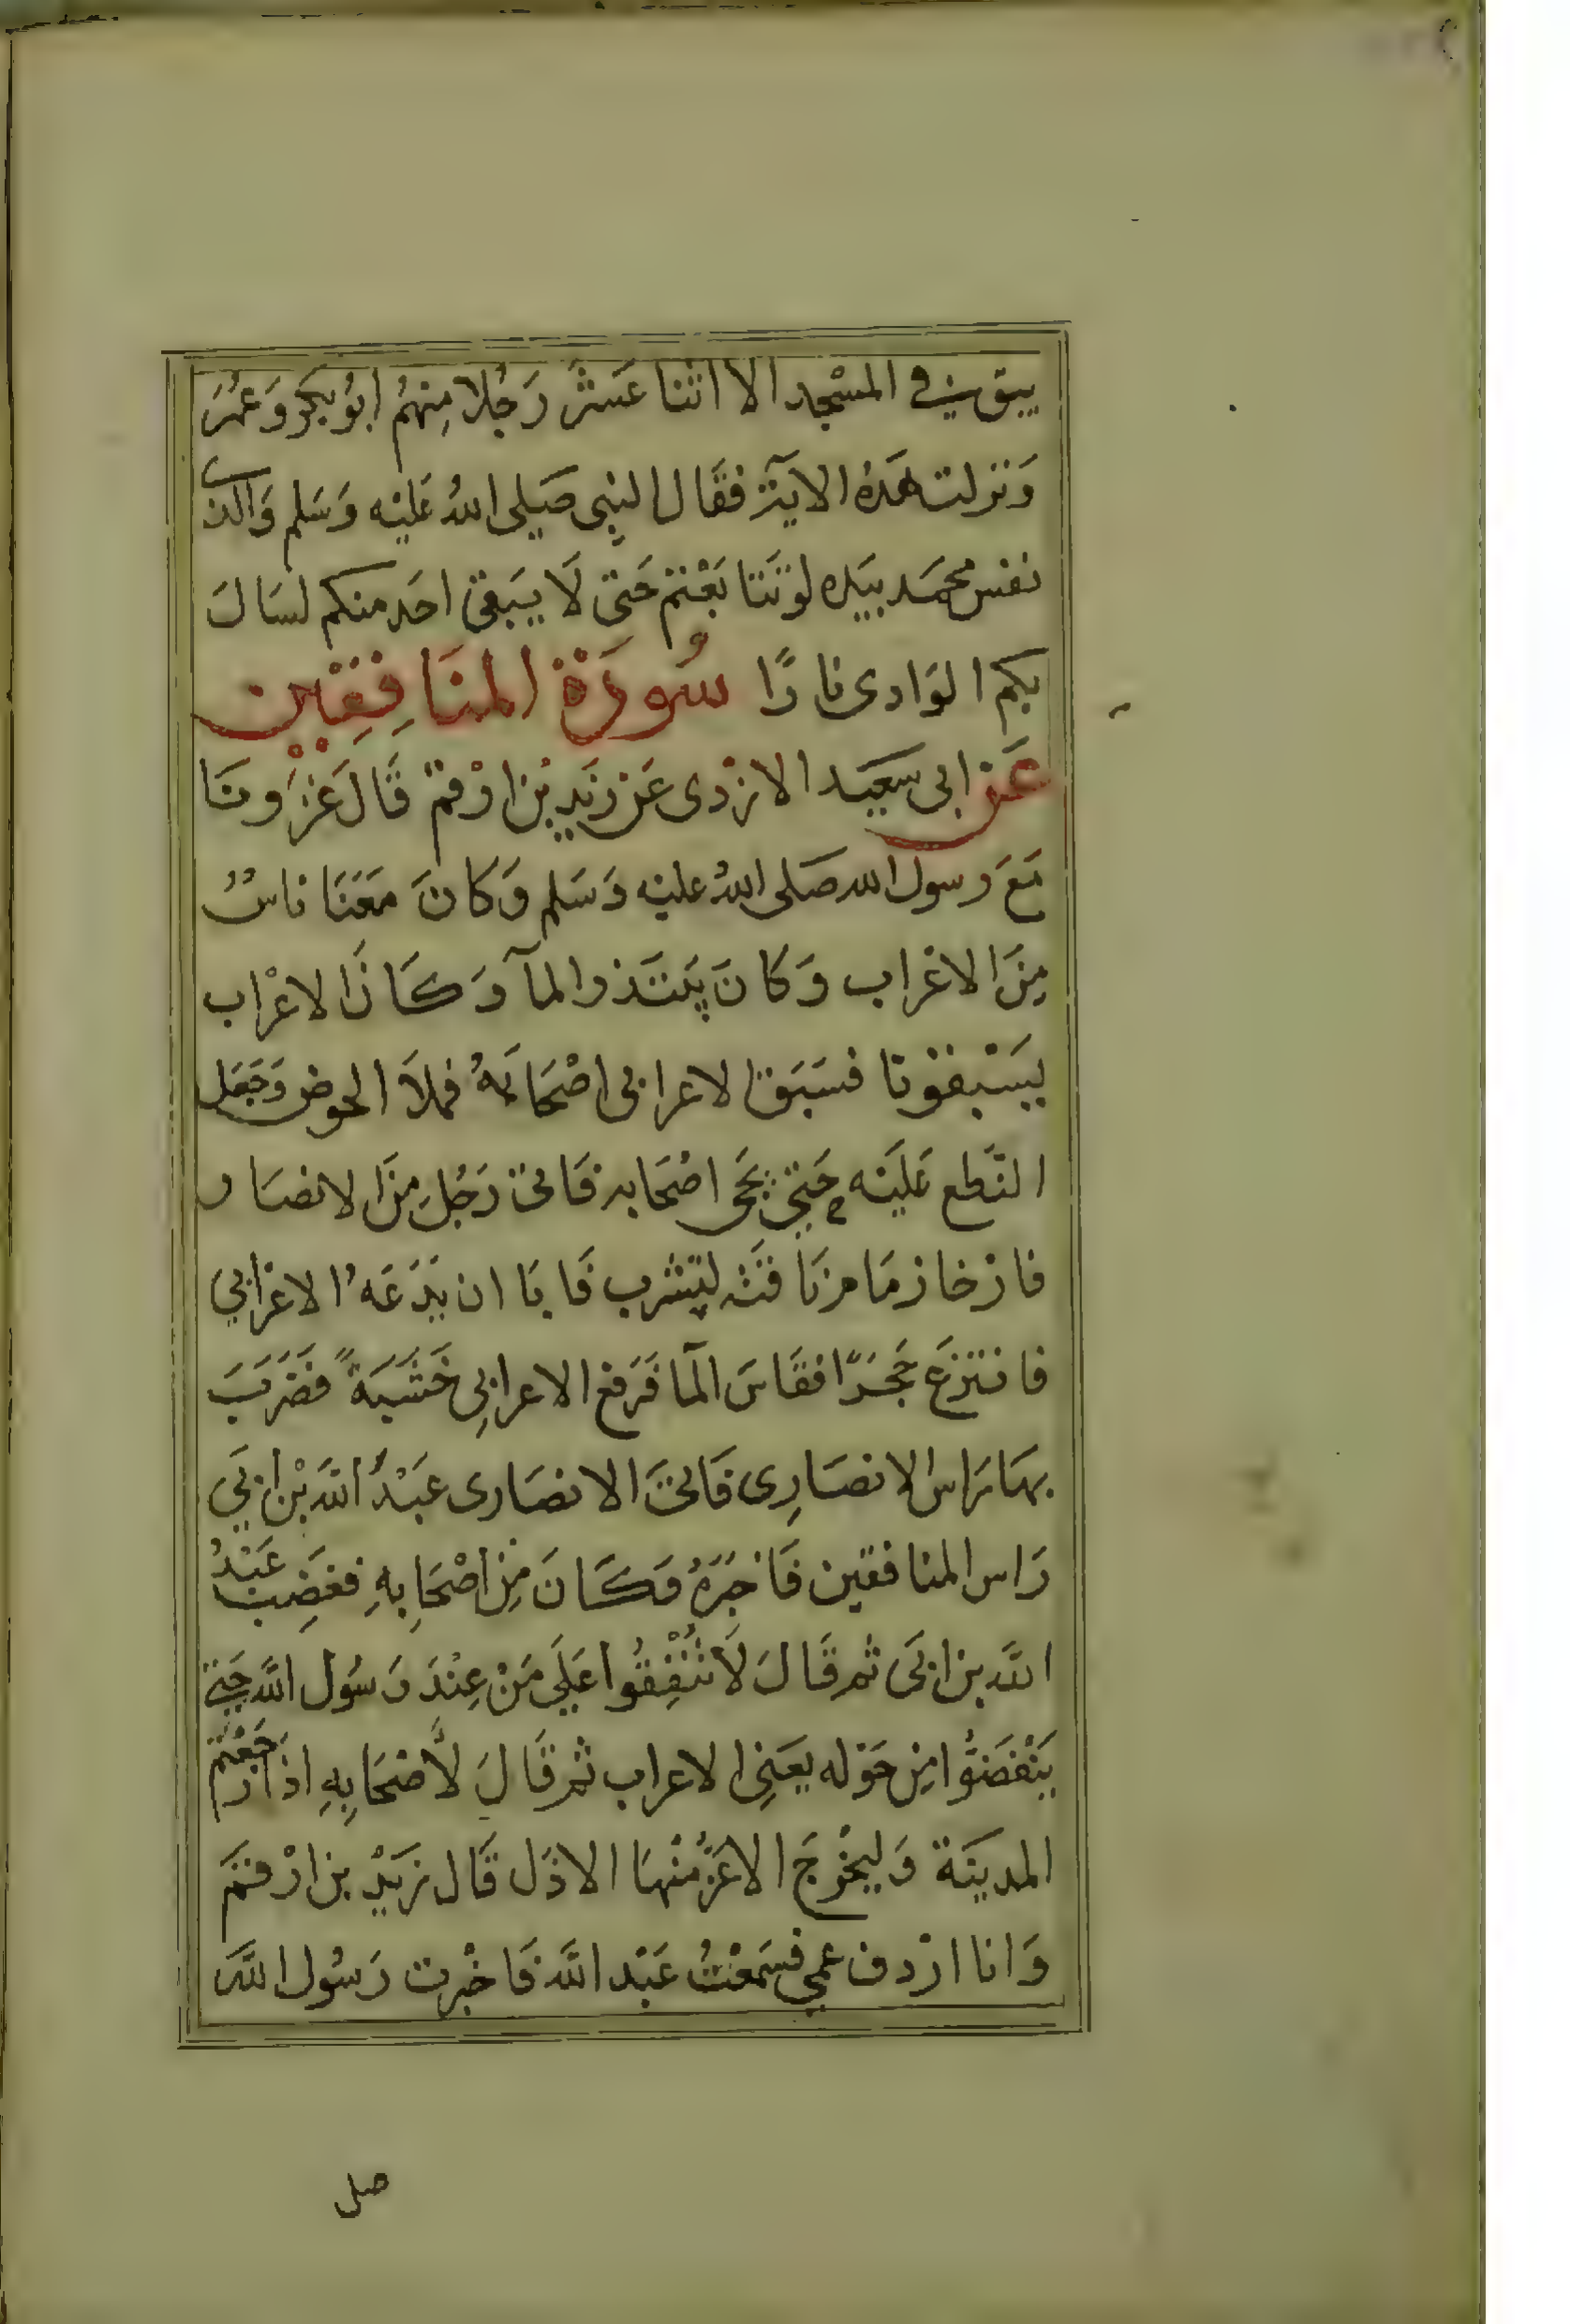 يبق في المسْجد الا اثنا عَشَر رَجُلا مِنهُم ابُو بكر وَعُمَر
وَنزلت هَذهُ الايَة فقَال النبِي صَلى اللهُ عَليْه وَسَلم وَالذي
نفس محمَد بيَده لو تَتَابَعْتم حَتى لَا يَبَقى احَد منكم لسَالَ
بكم الوَادى نارًا سُورَة المنَافِقِين
عَن ابى سَعيَد الازْدى عَن زَيدِ بْن ارْقم قَال غَزَونَا
مَعَ رسول الله صَلى اللهُ عليْه وَسَلم وَكانَ مَعَنَا ناسٌ
مِنَ الاعْراب وَكانَ يَبْتَدر المآ وَكَانَ الاعْرَاب
يَسْبقوْنا فسَبَق الاعرابى اصْحَابَهُ فملأ الحوض وَجَعَل
النَّطع عَليَه حَتي يَجى اصْحَابه فَاتى رَجُل مِنَ الانصَار
فارخا زمَامرنَاقتَه لتشرب فَابَا ان يَدَعَهُ الاعْرابي
فانتزعَ حَجَرًا فقَاسَ المآ فَرَفع الاعرابِى خَشَبَةً فضَرَبَ
بهَا رَاس الانصَارِى فَاتىَ الانصَارى عَبْدُ اللهَ بْن ابَي
رَاس المنافقين فَاخبَرَهُ وَكَانَ مِن اصْحَابِهِ فغضِبَ عَبْدُ
اللَّه بن ابَى ثم قَالَ لَا تُنْفِقُوا عَلَى مَنْ عِنْدَ رَسُول اللَّه حَتى
يَنْفَضُّوا مِن حَوْله يعَنِي الاعراب ثم قَالَ لَاصْحَابِهِ اذَا رَجَعْتم
المدينَة وَليخْرجَ الاعَزُّ مْنهَا الاذَل قَال زيَدْ بن ارْقمَ
وَانا ارْدف عمي فسَمعْتُ عَبْد اللَّه فَاخْبرت رَسُول اللَّه
صلى